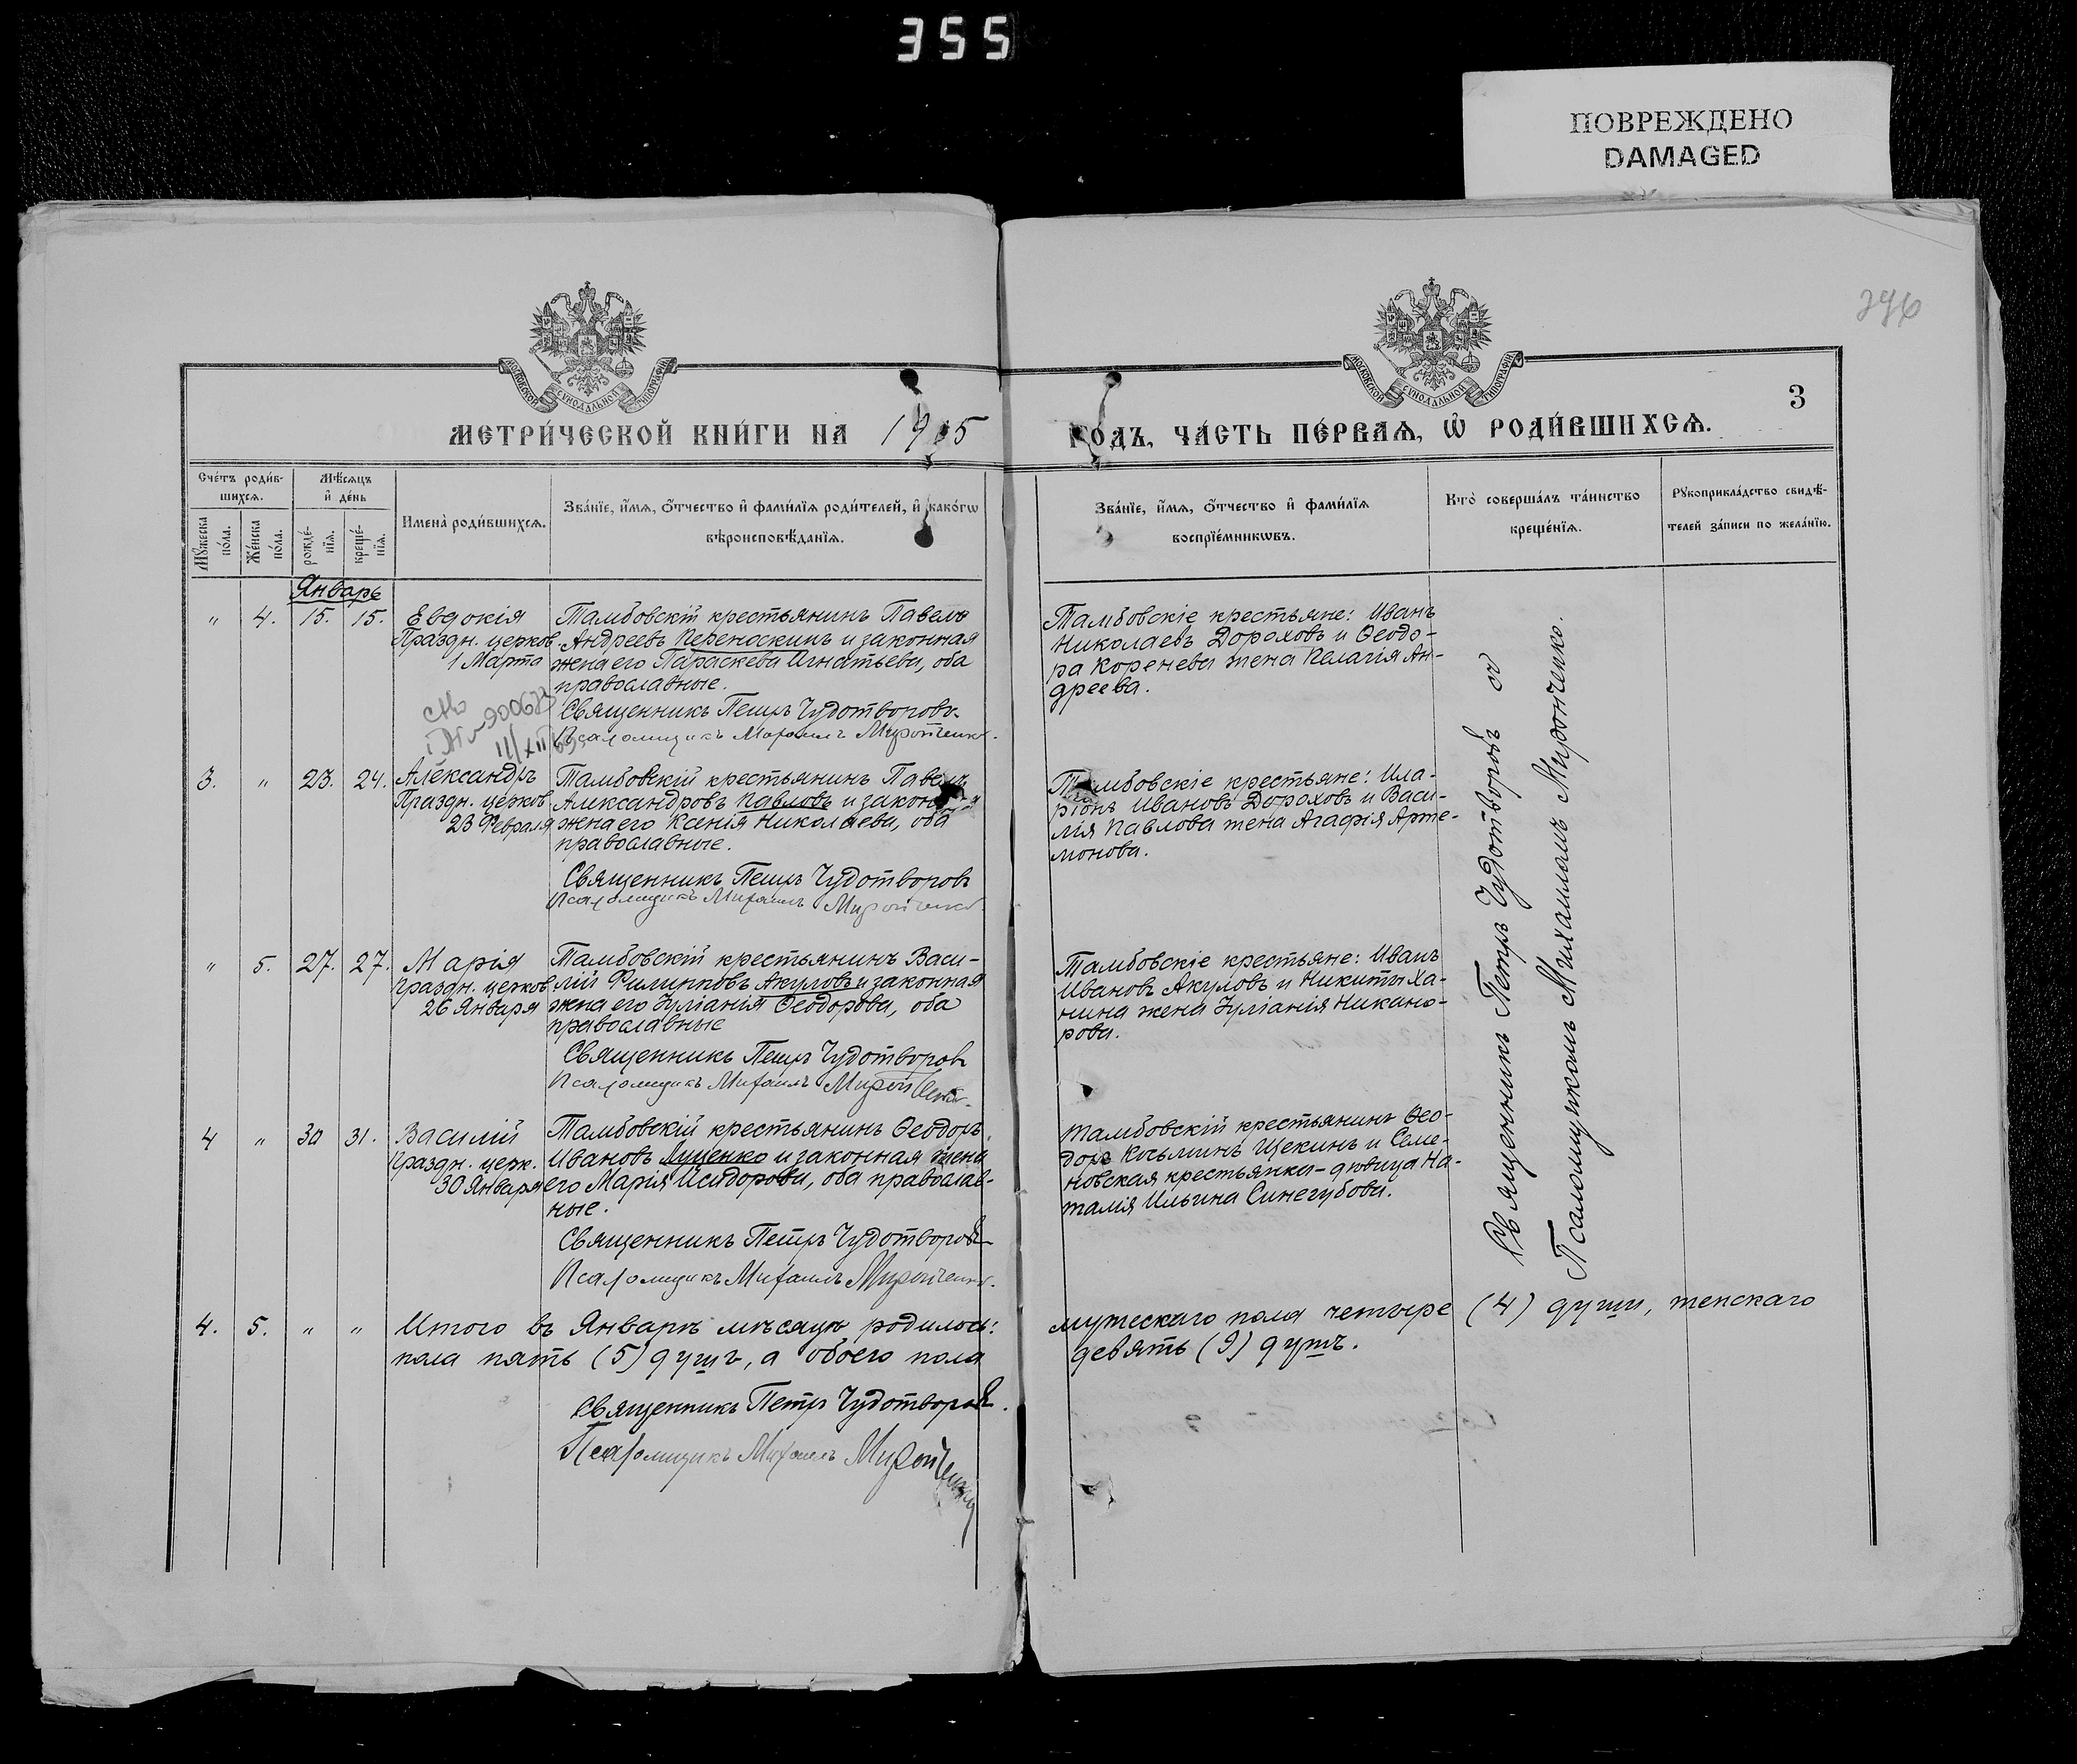 355
ПОВРЕЖДЕНО
DAMAGED
3
МОСКОВСКОЙ СУНОДАЛЬНОЙ ТИПОГРАФІИ
МОСКОВСКОЙ СУНОДАЛЬНОЙ ТИПОГРАФІИ
МЕТРИ́ЧЕСКОЙ КНИ́ГИ НА 1905 ГОДЪ, ЧА́СТЬ ПЕ́РВАѦ, Ѽ РОДИ́ВШИХСѦ.
Сче́тъ роди́в-
шихсѧ.
Мѣ́сѧцъ
и҆ де́нь
Мꙋ́жеска
по́ла.
Же́нска
по́ла.
рожде́-
нїѧ.
креще́-
нїѧ.
Имена̀ роди́вшихсѧ.
Зва́нїе, и҆́мѧ, ѻ҆́тчество и҆ фами́лїѧ роди́телей, и҆ како́гѡ
вѣроисповѣ́данїѧ.
Зва́нїе, и҆́мѧ, ѻ҆́тчество и҆ фами́лїѧ
воспрїе́мникѡвъ.
Кто̀ соверша́лъ та́инство
креще́нїѧ.
Рꙋкоприкла́дство свидѣ́-
телей за́писи по жела́нїю.
Январь
" 4. 15. 15. Евдокія
Праздн. церков.
1 Марта
Тамбовскій крестьянинъ Павелъ
Андреевъ Переноскинъ и законная
жена его Параскева Игнатьева, оба
православные.
Священникъ Петръ Чудотворовъ.
Псаломщикъ Михаилъ Миронченко.
Тамбовскіе крестьяне: Иванъ
Николаевъ Дороховъ и Ѳеодо-
ра Коренева жена Пелагія Ан-
дреева.
3. " 23. 24. Александръ
Праздн. церков.
23 Февраля
Тамбовскій крестьянинъ Павелъ
Александровъ Павловъ и законная
жена его Ксенія Николаева, оба
православные.
Священникъ Петръ Чудотворовъ
Псаломщикъ Михаилъ Миронченко.
Тамбовскіе крестьяне: Ила-
ріонъ Ивановъ Дороховъ и Васи-
лія Павлова жена Агафія Арте-
монова.
" 5. 27. 27. Марія
Праздн. церков.
26 Января
Тамбовскій крестьянинъ Васи-
лій Филипповъ Акуловъ и законная
жена его Іуліанія Ѳеодорова, оба
православные
Священникъ Петръ Чудотворовъ
Псаломщикъ Михаилъ Миронченко.
Тамбовскіе крестьяне: Иванъ
Ивановъ Акуловъ и Никиты Ха-
нина жена Іуліанія Никано-
рова.
4 " 30 31. Василій
Праздн. церк.
30 Января
Тамбовскій крестьянинъ Ѳеодоръ
Ивановъ Луценко и законная жена
его Марія Исидорова, оба православ-
ные.
Священникъ Петръ Чудотворовъ
Псаломщикъ Михаилъ Миронченко.
Тамбовскій крестьянинъ Ѳео-
доръ Косьминъ Щекинъ и Семе-
новская крестьянка-дѣвица На-
талія Ильина Синегубова.
Священникъ Петръ Чудотворовъ съ
Псаломщикомъ Михаиломъ Миронченко.
4. 5. " " Итого въ Январѣ мѣсяцѣ родилось: мужескаго пола четыре (4) души, женскаго
пола пять (5) душъ, а обоего пола девять (9) душъ.
Священникъ Петръ Чудотворовъ.
Псаломщикъ Михаилъ Миронченко